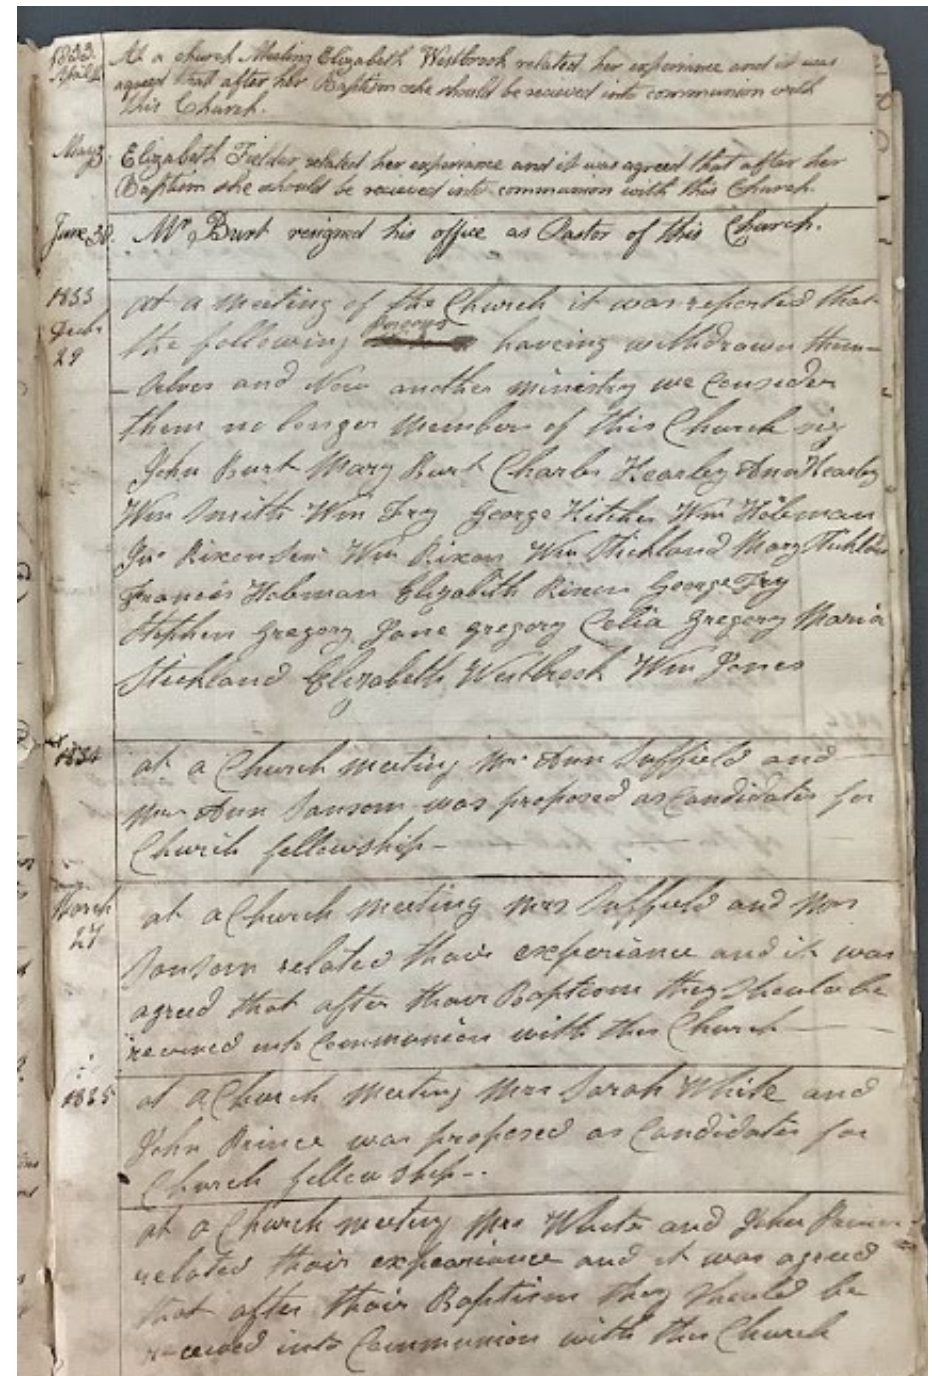 1833
April
At a church Meeting Elizabeth Westbrook related her experiance and it was
agreed that after her Baptism she should be recieved into communion with
this Church.
May 3
Elizabeth Fielder related her experiance and it was agreed that after her
Baptism she should be recieved into communion with this Church.
June 30. Mr Burt resigned his office as Pastor of this Church.
1833
29
at a meeting of the Church it was reported that
the following persons haveing withdrawn them-
-selves and Now another ministry we Consider
them no longer Members of this Church viz
John Burt Mary Burt Charles Hearley Ann Hearley
Wm Smith Wm Fry George Kitcher Wm Hobman
Jno Rixon Senr Wm Rixon Wm Stickland Mary Stickland
Francis Hobman Elizabeth Rixon George Fry
Stephen Gregory Jane Gregory Celia Gregory Maria
Stickland Elizabeth Westbrook Wm Jones
1834
at a Church meeting Mrs Ann Suffield and
Mrs Ann Sansom was proposed as Candidates for
Church fellowship-
March
27
at a Church meeting Mrs Suffield and Mrs
Sansom related thair experiance and it was
agreed that after thair Baptism they Should be
received into Communion with this Church
1835
at a Church meeting Mrs Sarah White and
John Prince was proposed as Candidates for
Church fellowship-.
at a Church meeting Mrs White and John Prince
related thair expeariance and it was agreed
that after thair Baptism they Should be
received into Communion with this Church